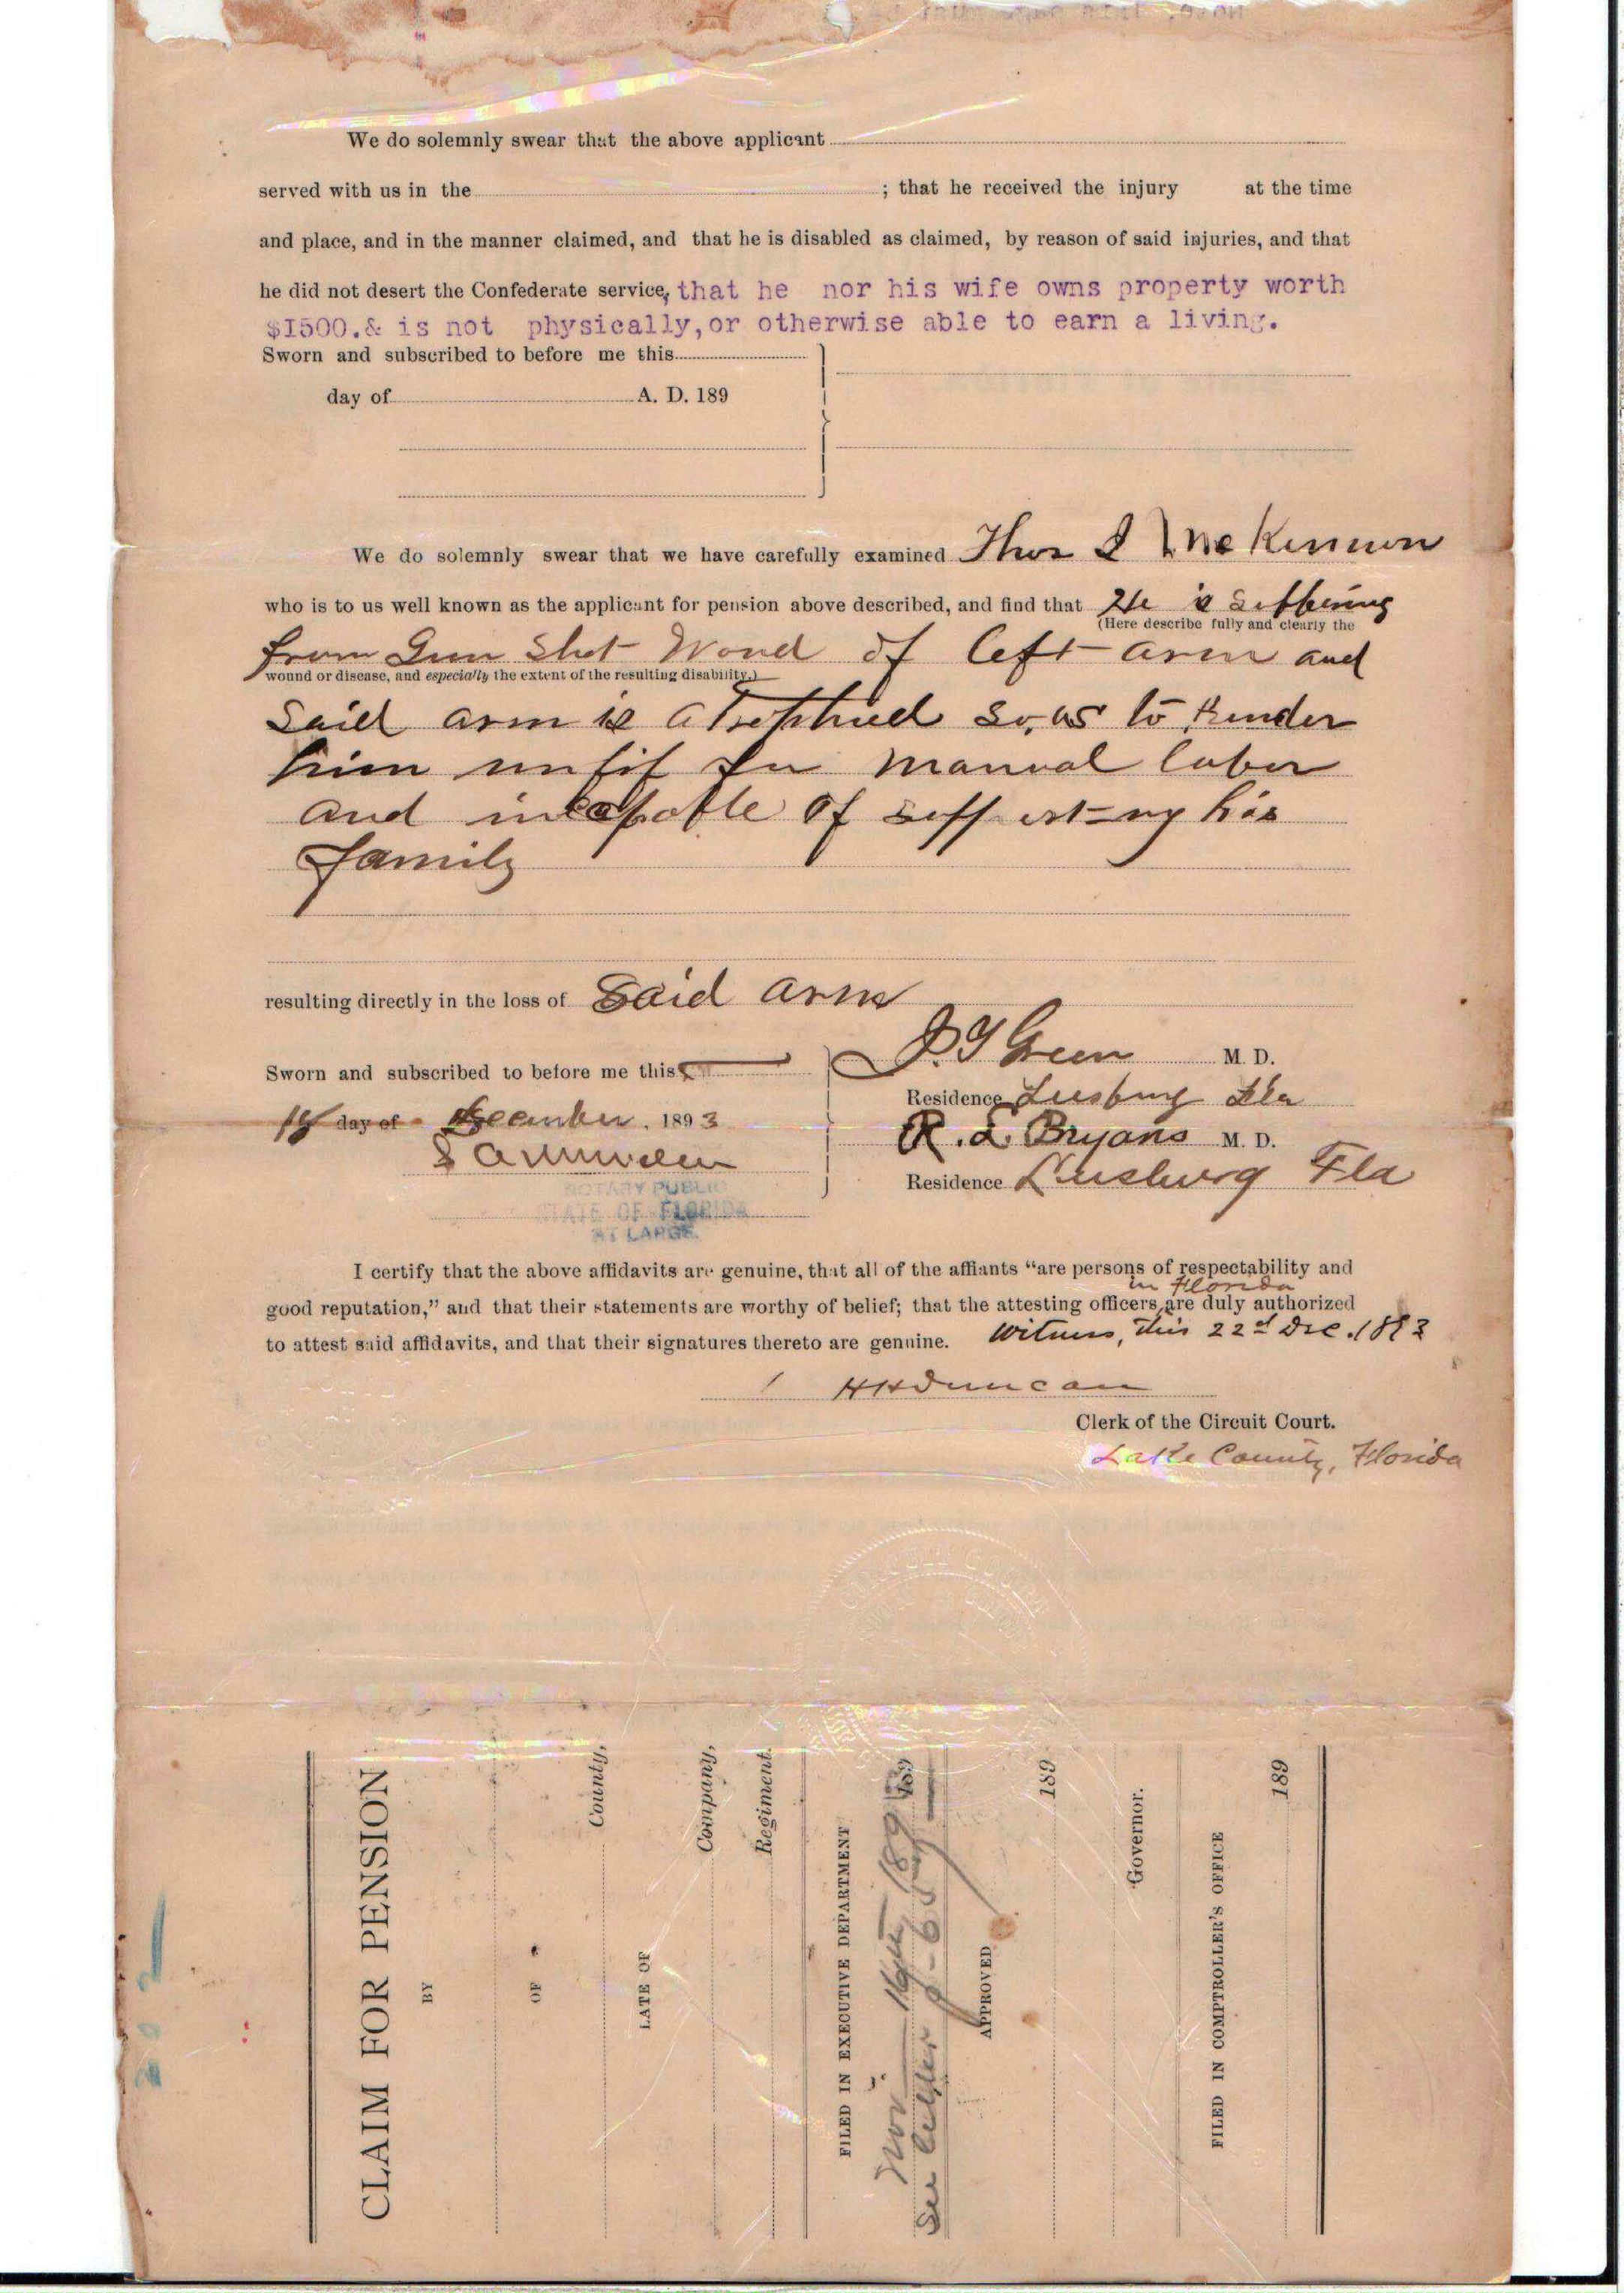 We do solemnly swear that the above applicant
served with us in the ; that he received the injury at the time
and place, and in the manner claimed, and that he is disabled as claimed, by reason of said injuries, and that
he did not desert the Confederate service, that he nor his wife owns property worth
$I500.& is not physically,or otherwise able to earn a living.
Sworn and subscribed to before me this
day of A. D. 189
We do solemnly swear that we have carefully examined Thos I McKinnon
who is to us well known as the applicant for pension above described, and find that He is suffering
(Here describe fully and clearly the
from Gun Shot Wond of left arm and
wound or disease, and especially the extent of the resulting disability.)
Said arm is so, as to Render
him unfit for manual labor
and incapable of his
family
resulting directly in the loss of Said arm
Sworn and subscribed to before me this
J. G Green M. D.
Residence Leesburg Fla
18 day of December. 1893
R. E. Bryans M. D.
Residence Leesburg Fla
NOTARY PUBLIC
STATE OF FLORIDA
AT LARGE.
I certify that the above affidavits are genuine, that all of the affiants “are persons of respectability and
in Florida
good reputation,” and that their statements are worthy of belief; that the attesting officers, are duly authorized
to attest said affidavits, and that their signatures thereto are genuine. Witness, this 22d Dec. 1893
HHDuncan
Clerk of the Circuit Court.
Lake County, Florida
CLAIM FOR PENSION
BY
OF
County,
LATE OF
Company,
Regiment.
FILED IN EXECUTIVE DEPARTMENT
Nov 189
189
See
APPROVED
189
Governor.
FILED IN COMPTROLLER'S OFFICE
189